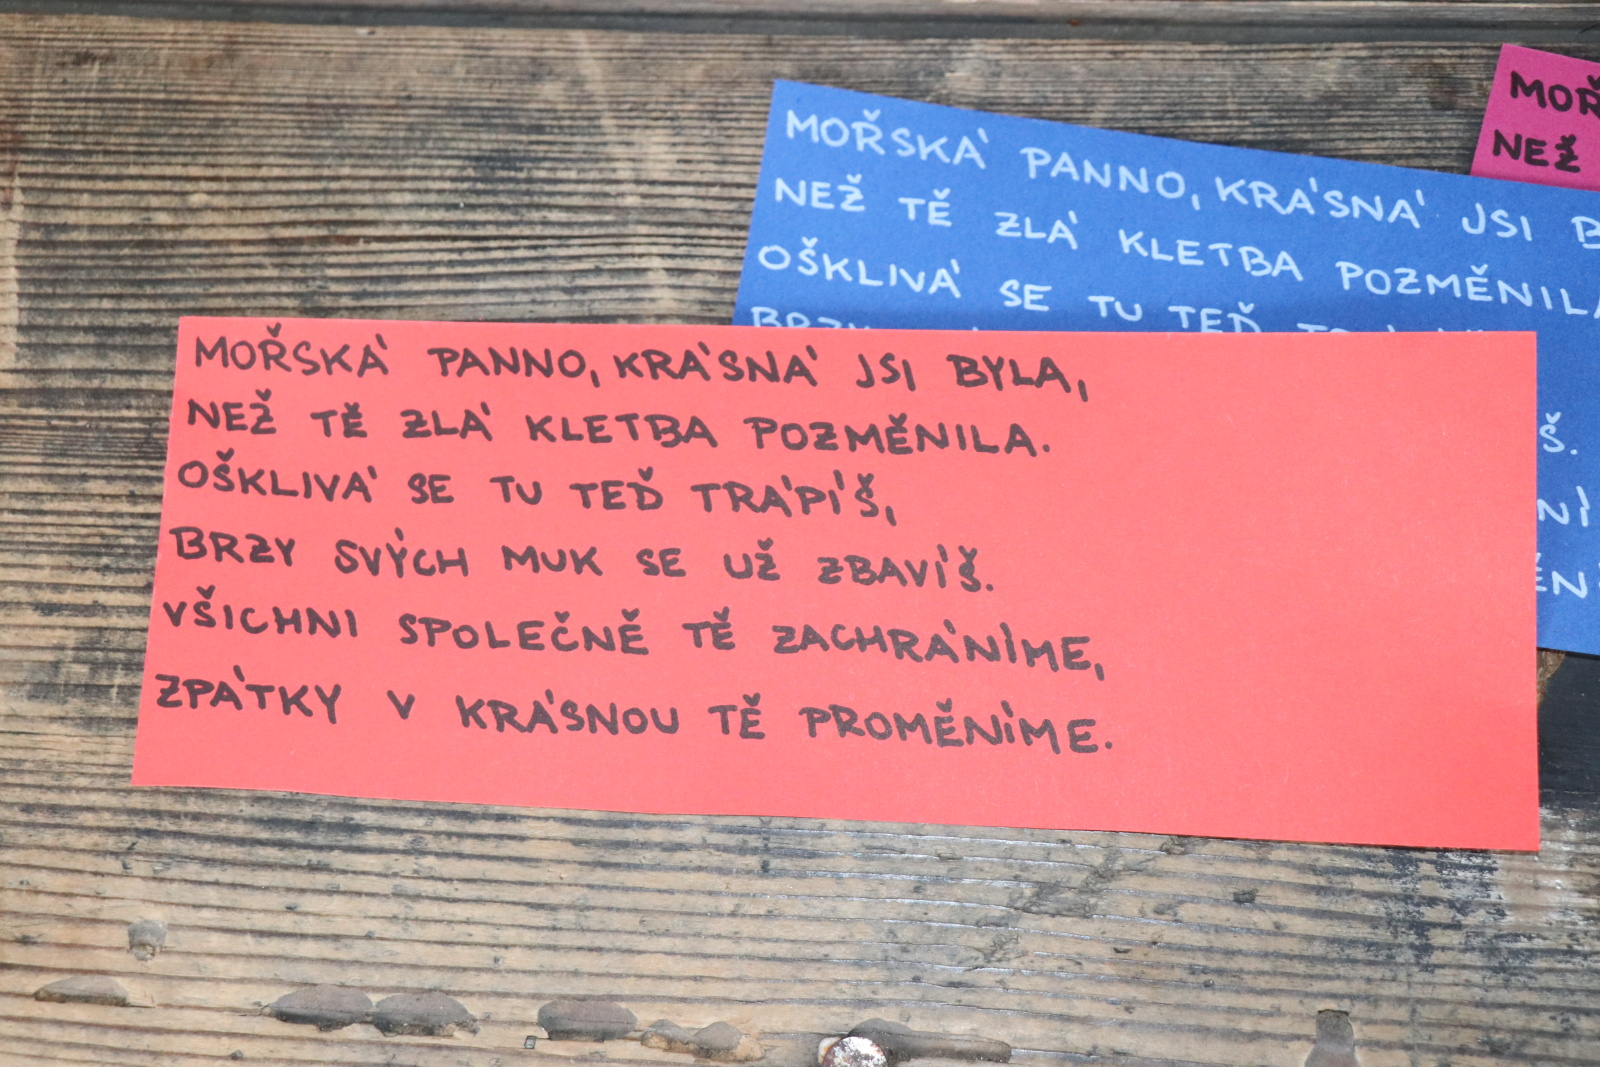 MOŘSKÁ PANNO, KRÁSNÁ JSI BYLA,
NEŽ TĚ ZLÁ KLETBA POZMĚNILA.
OŠKLIVÁ SE TU TEĎ TRÁPÍŠ,
BRZY SVÝCH MUK SE UŽ ZBAVÍŠ.
VŠICHNI SPOLEČNĚ TĚ ZACHRÁNÍME,
ZPÁTKY V KRÁSNOU TĚ PROMĚNÍME.
MOŘSKÁ PANNO, KRÁSNÁ JSI
NEŽ TĚ ZLÁ KLETBA POZMĚNILA
OŠKLIVÁ SE TU TEĎ
BRZY
NEŽ